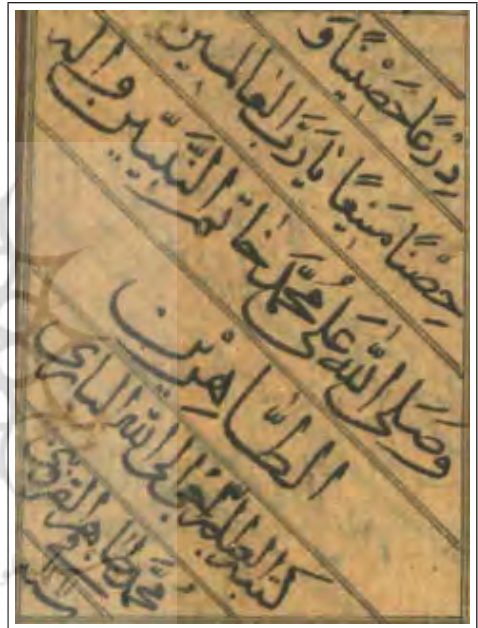 دِرْعًا حَصِينًا وَ
حِصْنًا مَنِيعًا يَا رَبَّ الْعَالَمِينَ
وَصَلَّى اللّٰهُ عَلٰى مُحَمَّدٍ خَاتَمِ النَّبِيِّينَ وَالِهِ
الطَّاهِرِينَ
كتبه العبد المحتاج الى الله الباري
محمد طاهر القزويني
سنه